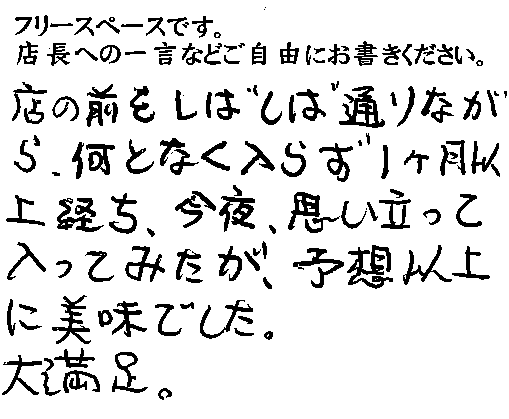 フリースペースです。
店長への一言などご自由にお書きください。
店の前をしばしば通りなが
ら、何となく入らず1ヶ月以
上経ち、今夜、思い立って
入ってみたが、予想以上
に美味でした。
大満足。